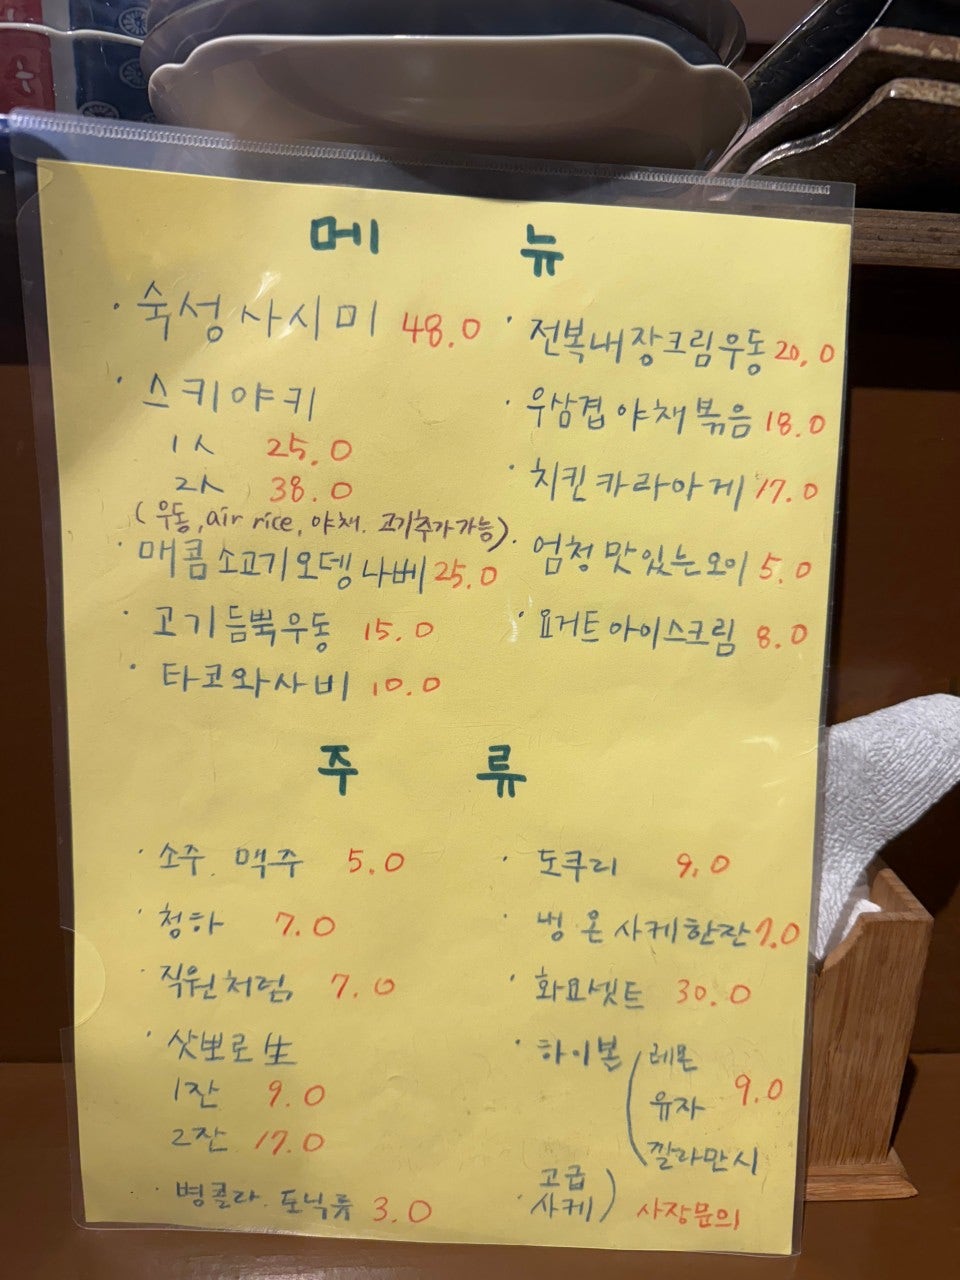 메 뉴
· 숙성사시미 48.0
· 스키야키
1人 25.0
2人 38.0
(우동, air rice, 야채. 고기추가가능)
· 매콤소고기오뎅나베 25.0
· 고기듬뿍우동 15.0
· 타코와사비 10.0
· 전복내장크림우동 20.0
· 우삼겹야채볶음 18.0
· 치킨카라아게 17.0
· 엄청맛있는오이 5.0
· 요거트아이스크림 8.0
주 류
· 소주. 맥주 5.0
· 청하 7.0
· 직원처럼 7.0
· 삿뽀로生
1잔 9.0
2잔 17.0
· 병콜라. 토닉류 3.0
· 도쿠리 9.0
· 냉 온 사케한잔 7.0
· 화요셋트 30.0
· 하이볼 (레몬
유자 9.0
깔라만시
· 고급
사케) 사장문의